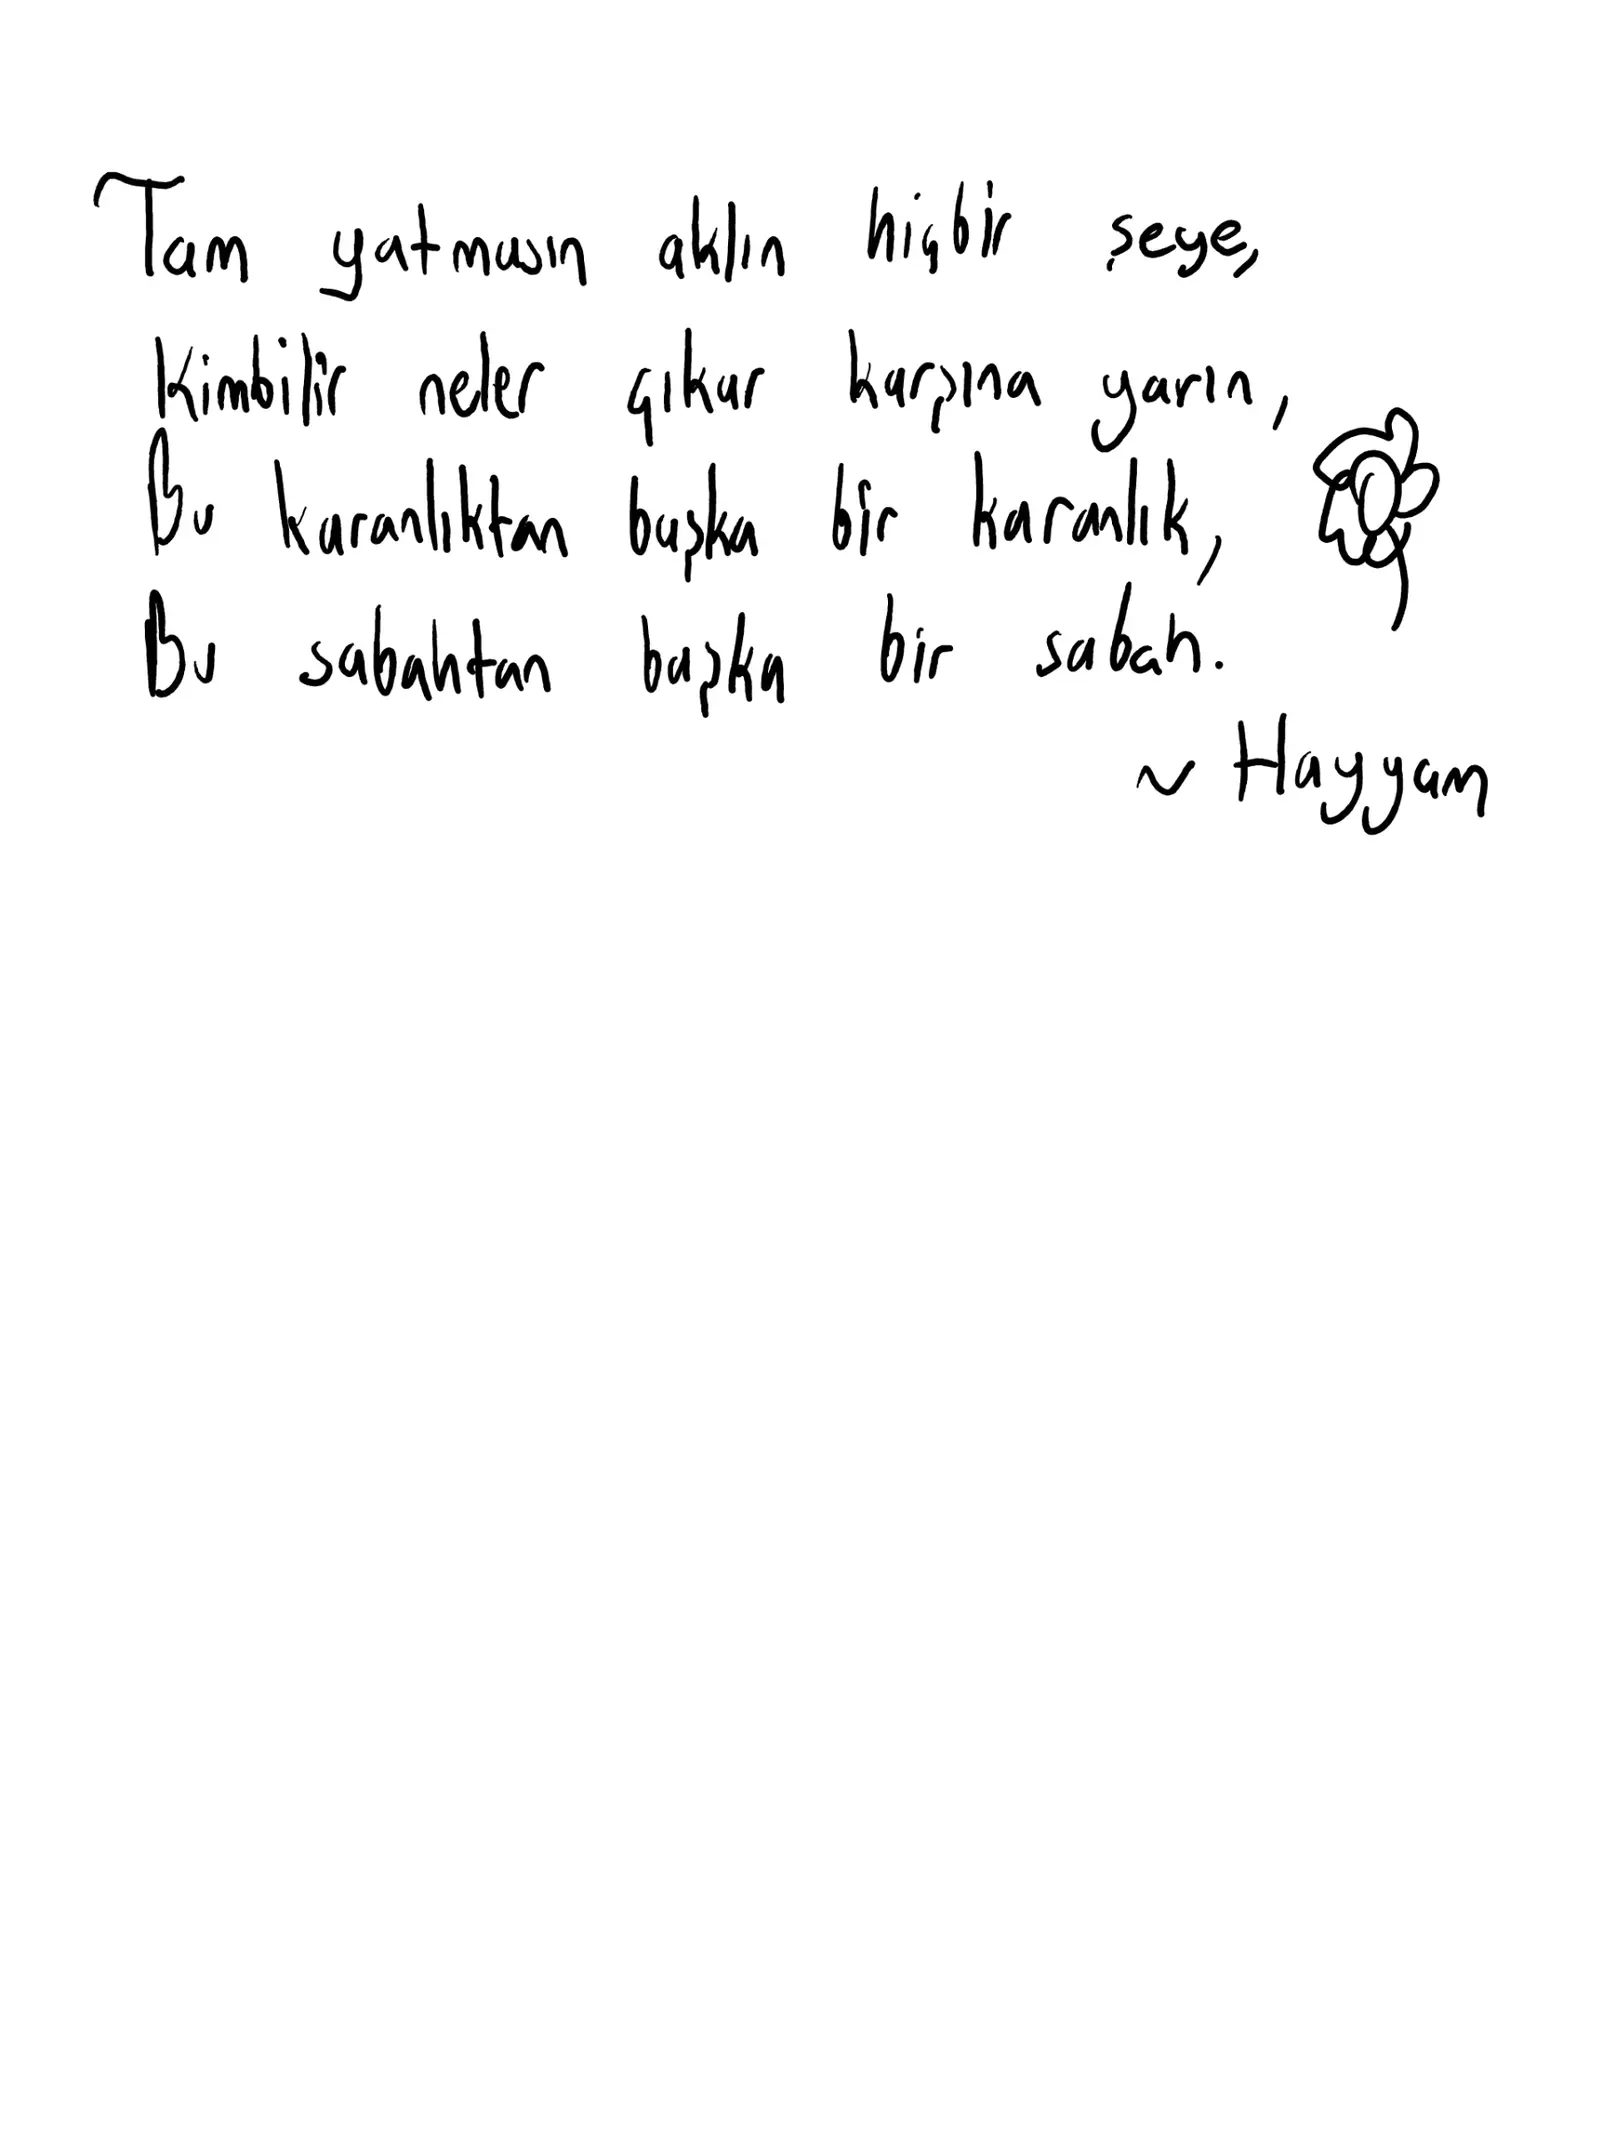 Tam yatmasın aklın hiçbir şeye,
Kimbilir neler çıkar karşına yarın,
Bu karanlıktan başka bir karanlık,
Bu sabahtan başka bir sabah.
~ Hayyam